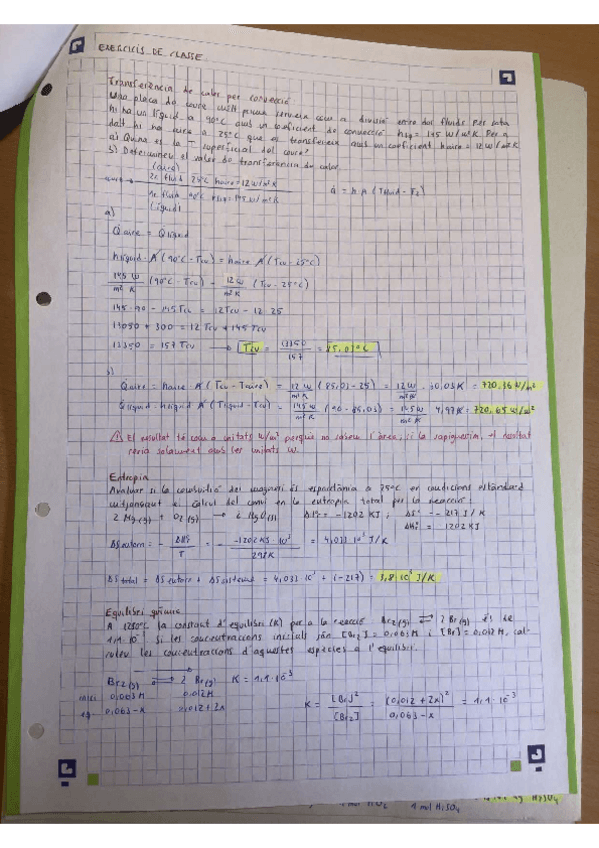 EXERCICIS DE CLASSE
Transferència de calor per convecció
Una placa de coure serveix com a divisió entre dos fluids. Per sota
hi ha un líquid a 90°C amb un coeficient de convecció hliq = 145 W/m²K. Per a
dalt hi ha aire a 25°C que el transfereix amb un coeficient haire = 12 W/m²K
a) Quina és la T superficial del coure?
b) Determineu el valor de transferència de calor.
(aire)
2c fluid 25°C haire = 12 W/m²K
1c fluid 90°C hliq = 145 W/m²K
(líquid)
a)
Qaire = Qliquid
hliquid · A (90°C - Tcu) = haire A (Tcu - 25°C)
145 W / m² K (90°C - Tcu) = 12 W / m² K (Tcu - 25°C)
145·90 - 145Tcu = 12Tcu - 12·25
13050 + 300 = 12Tcu + 145Tcu
13350 = 157Tcu → Tcu = 13350 / 157 = 85,03°C
b)
Qaire = haire A (Tcu - Taire) = 12 W / m² K (85,03 - 25) = 12 W / m² K · 60,03 K = 720,36 W/m²
Qliquid = hliquid A (Tliquid - Tcu) = 145 W / m² K (90 - 85,03) = 145 W / m² K 4,97 K = 720,65 W/m²
⚠ El resultat té com a unitats W/m² perquè no sabem l'àrea; si la sapiguessim, el resultat
seria solament amb les unitats W.
Entropia
Avaluar si la combustió del magnesi és espontània a 25°C en condicions estàndard
mitjançant el càlcul del canvi en la entropia total per la reacció:
2 Mg(s) + O2(g) → 2 MgO(s) ΔH° = -1202 KJ ; ΔS° = -217 J/K
ΔSentorn = - ΔH° / T = - -1202 KJ · 10³ / 298K = 4,033·10³ J/K
ΔStotal = ΔSentorn + ΔSsistema = 4,033·10³ + (-217) = 3,8·10³ J/K
Equilibri químic
A 1280°C la constant d'equilibri (K) per a la reacció Br2(g) ⇄ 2 Br(g) és de
1,1·10⁻³ si les concentracions inicials són [Br2] = 0,063 M i [Br] = 0,012 M, cal-
culeu les concentracions d'aquestes espècies a l'equilibri.
Br2(g) ⇄ 2 Br(g) K = 1,1·10⁻³
inici 0,063 M 0,012 M
eq 0,063 - x 0,012 + 2x
K = [Br]² / [Br2] = (0,012 + 2x)² / 0,063 - x = 1,1·10⁻³
1 mol H2SO4